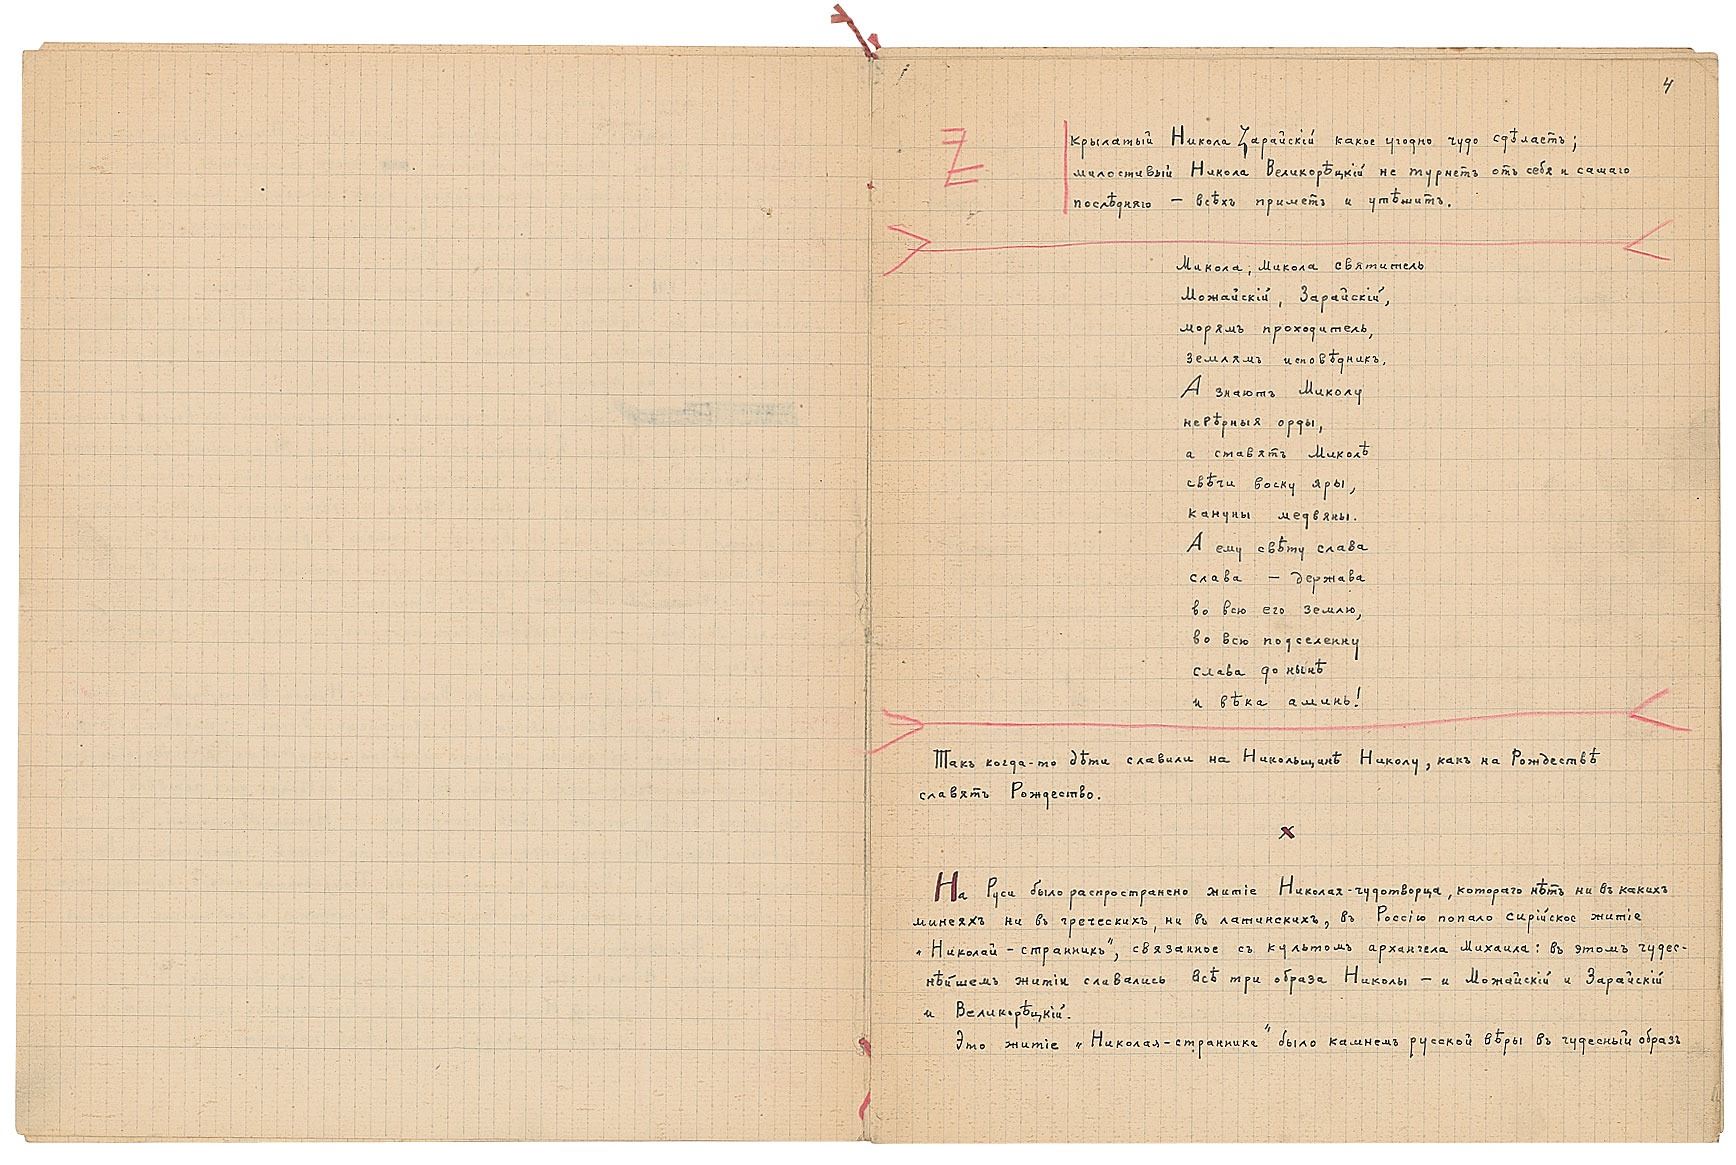 4
Z
крылатый Никола Зарайскій какое угодно чудо сдѣлаетъ;
милостивый Никола Великорѣцкій не турнетъ отъ себя и самаго
послѣдняго — всѣхъ приметъ и утѣшитъ.
Микола, Микола святитель
Можайскій, Зарайскій,
морямъ проходитель,
землямъ исповѣдникъ.
А знаютъ Миколу
невѣрныя орды,
а ставятъ Миколѣ
свѣчи воску яры,
кануны медвяны.
А ему свѣту слава
слава — держава
во всю его землю,
во всю подселенну
слава до нынѣ
и вѣка аминь!
Такъ когда-то дѣти славили на Никольщинѣ Николу, какъ на Рождествѣ
славятъ Рождество.
x
На Руси было распространено житіе Николая-чудотворца, котораго нѣтъ ни въ какихъ
минеяхъ ни въ греческихъ, ни въ латинскихъ, въ Россію попало сирійское житіе
„Николай-странникъ“, связанное съ культомъ архангела Михаила: въ этомъ чудес-
нѣйшемъ житіи славились всѣ три образа Николы — и Можайскій и Зарайскій
и Великорѣцкій.
Это житіе „Николая-странника“ было камнемъ русской вѣры въ чудесный образъ